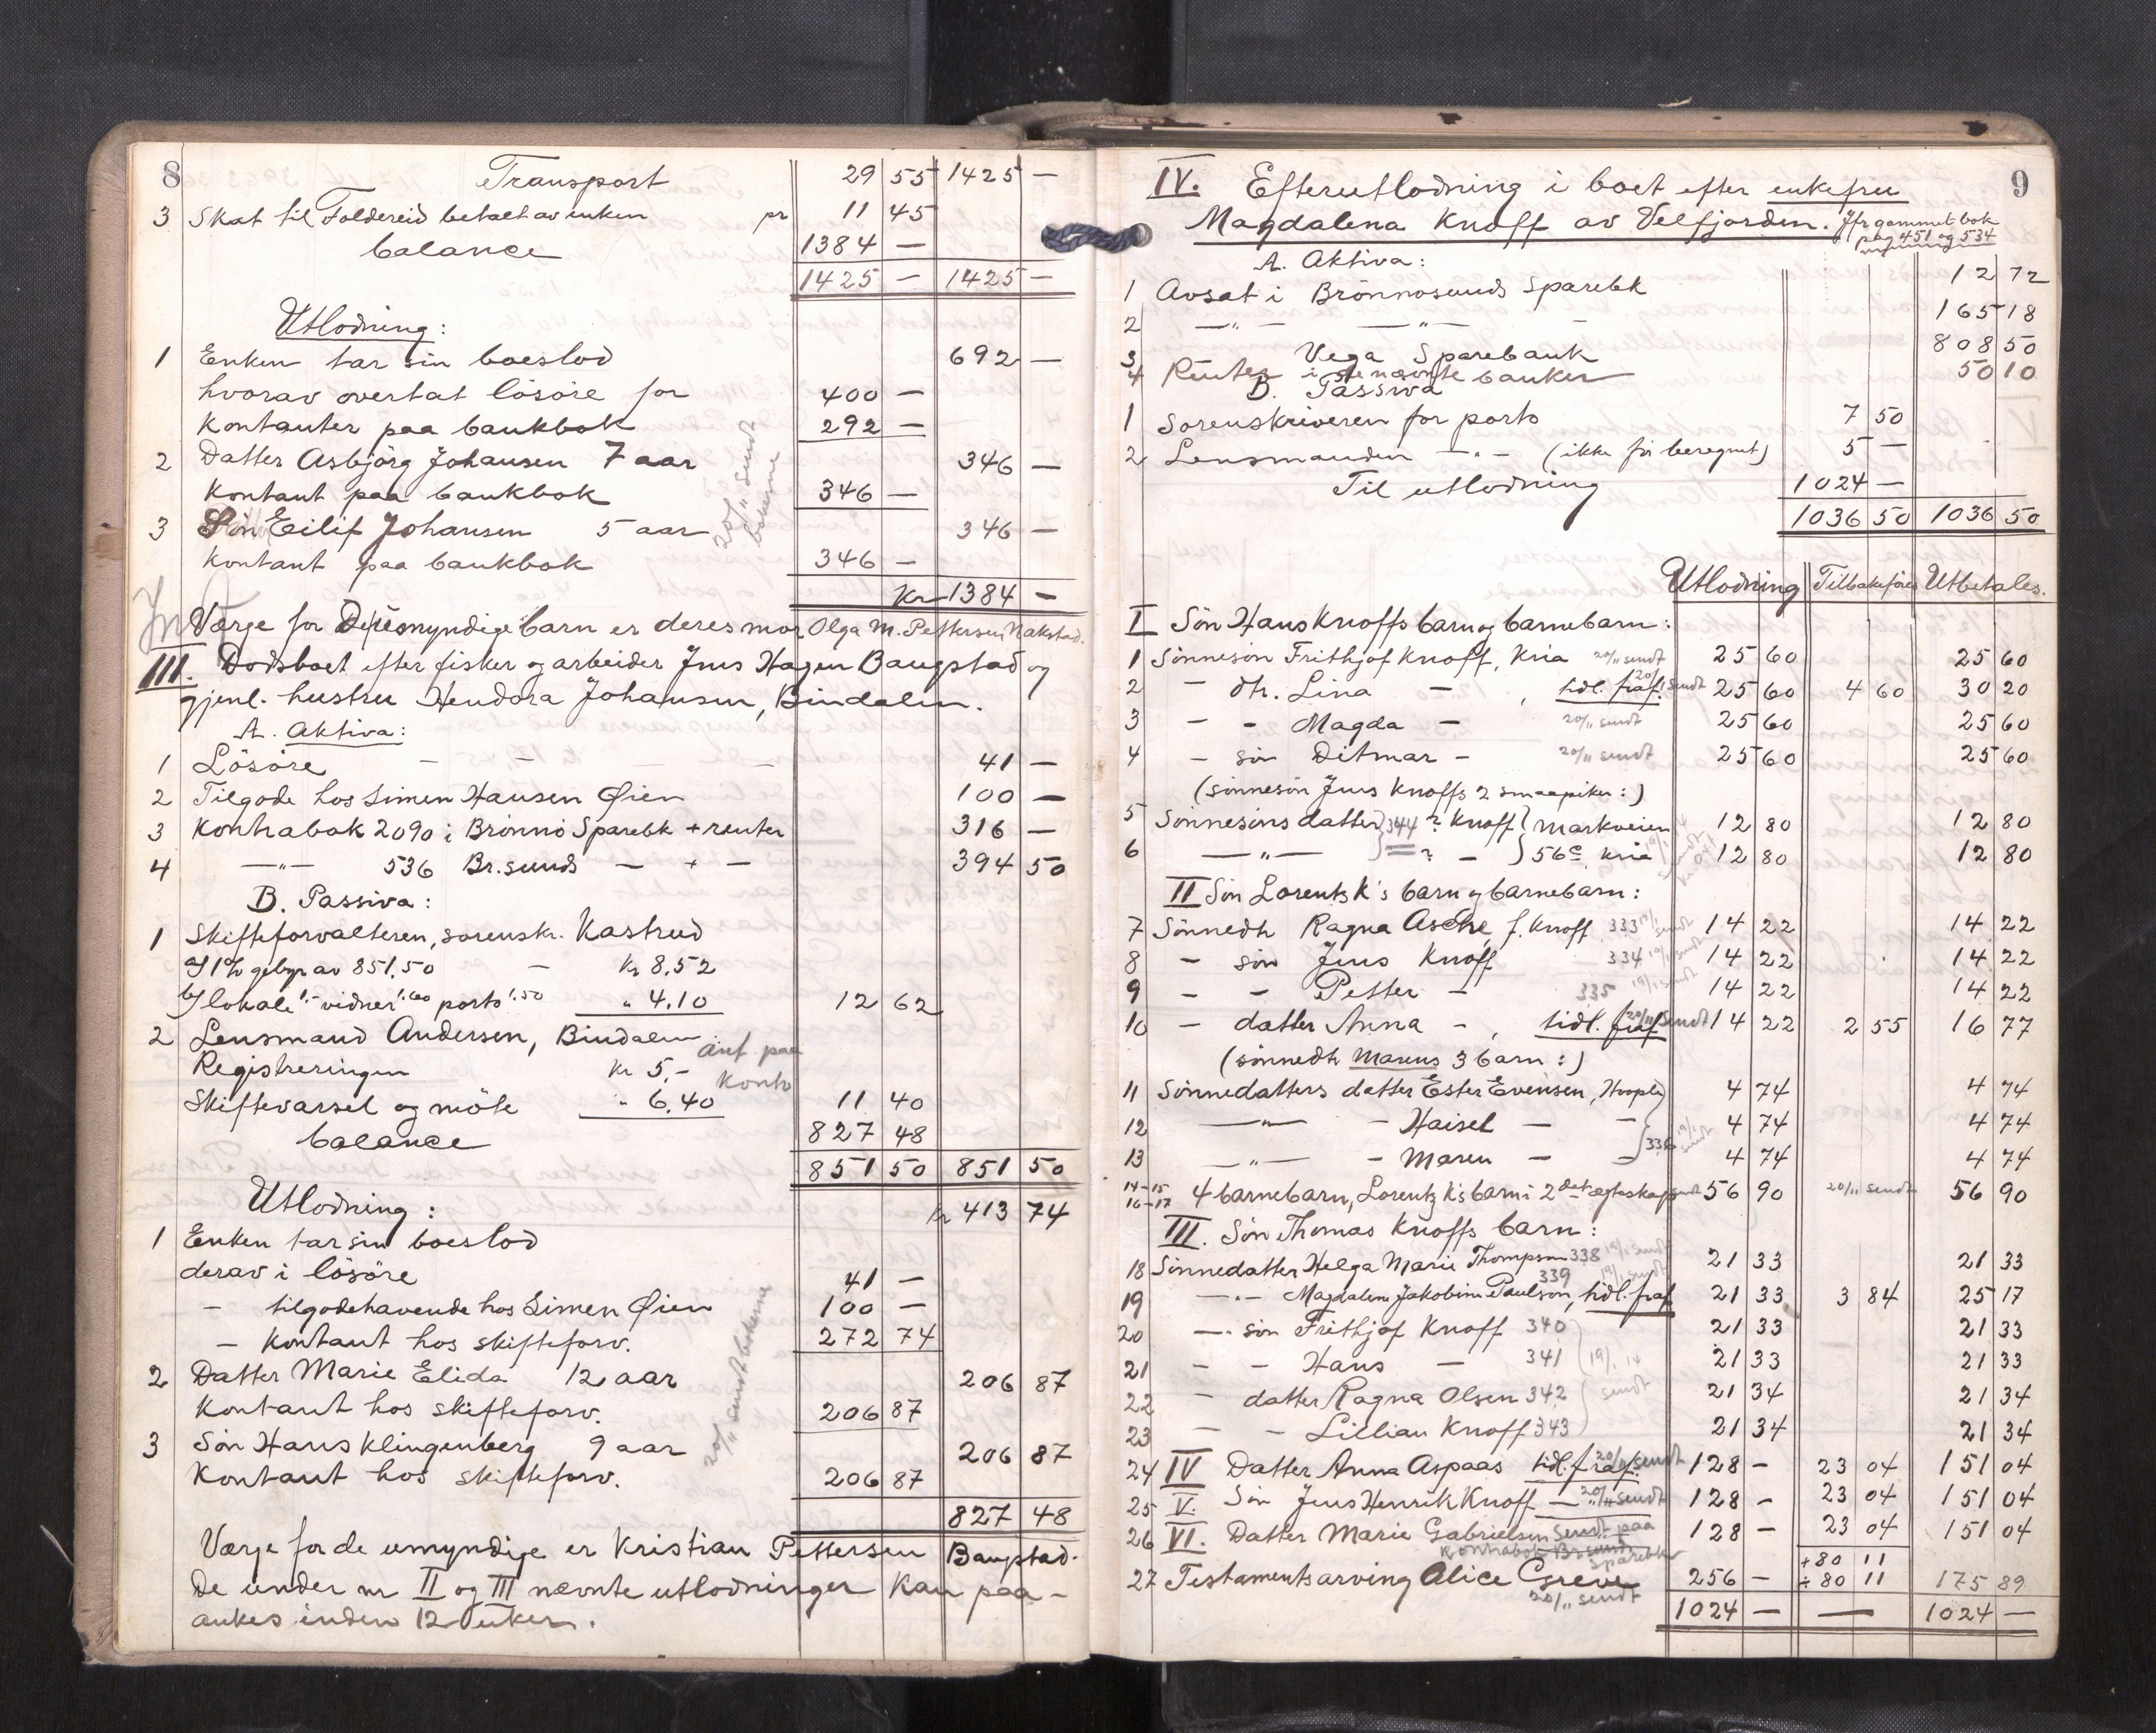 8
Transport 29 55 1425 —
3 Skat til Foldereid betalt av enken pr 11 45
balance 1384 —
1425 — 1425 —
Utlodning:
1 Enken tar sin boeslod 692 —
hvorav overtat lösöre for 400 —
Kontanter paa bankbok 292 —
2 Datter Asbjörg Johansen 7 aar 346 —
Kontant paa bankbok 346 —
3 Sön Eilif Johansen 5 aar 346 —
Kontant paa bankbok 346 —
20/11 sendt bökerne
Kr 1384 —
Værge for De umyndige barn er deres mor Olga M. Pettersen Nakstad.
III. Dödsboet efter fisker og arbeider Jens Hagen Baugstad og
gjenl. hustru Hendora Johansen, Bindalen.
A. Aktiva:
1 Lösöre — — — 41 —
2 Tilgode hos Simen Hansen Øien 100 —
3 Kontrabok 2090 i Brönnö Sparebk + renter 316 —
4 —"— 536 Br.sunds — + — 394 50
B. Passiva:
1 Skifteforvalteren, sorenskr. Kastrud
a/ 1% gebyr av 851,50 — Kr 8,52
b/ lokale 1.- vidner 1.60 porto 1.50 " 4.10 12 62
2 Lensmand Andersen, Bindalen
Registreringen Kr 5,-
anf. paa konto
Skiftevarsel og möte " 6.40 11 40
balance 827 48
851 50 851 50
Utlodning:
1 Enken tar sin boeslod kr 413 74
derav i lösöre 41 —
— tilgodehavende hos Simen Øien 100 —
— Kontant hos skifteforv. 272 74
2 Datter Marie Elida 12 aar 206 87
Kontant hos skifteforv. 206 87
3 Sön Hans Klingenberg 9 aar 206 87
Kontant hos skifteforv. 206 87
20/11 sendt bökerne
827 48
Værge for de umyndige er Kristian Pettersen Baugstad.
De under nr II og III nævnte utlodninger kan paa-
ankes inden 12 uker.
9
IV. Efterutlodning i boet efter enkefru
Magdalena Knoff av Velfjorden. Jfr gammel bok
pag 451 og 534
A. Aktiva:
1 Avsat i Brönnösunds Sparebk 12 72
2 —"— —"— — 165 18
3 Vega Sparebank 808 50
4 Renter i de nævnte banker 50 10
B. Passiva
1 Sorenskriveren for porto 7 50
2 Lensmanden —"— (ikke för beregnet) 5 —
Til utlodning 1024 —
1036 50 1036 50
Utlodning Tilbakeföres Utbetales.
I Sön Hans Knoffs barn og barnebarn:
1 Sönnesön Frithjof Knoff, Kria 20/11 sendt 25 60 25 60
2 — dtr. Lina — , tidl. fraf. 20/11 sendt 25 60 4 60 30 20
3 — — Magda — 20/11 sendt 25 60 25 60
4 — sön Ditmar — 20/11 sendt 25 60 25 60
(sönnesön Jens Knoffs 2 smaapiker:)
5 Sönnesöns datter 344 ? Knoff Markveien 12 80 12 80
6 —"— ? — 56c Kria 12 80 12 80
II Sön Lorentz K's barn og barnebarn:
7 Sönnedtr Ragna Asche, f. Knoff 333 19/1 sendt 14 22 14 22
8 — sön Jens Knoff 334 19/1 sendt 14 22 14 22
9 — — Petter — 335 19/1 sendt 14 22 14 22
10 — datter Anna — , tidl. fraf. 20/11 sendt 14 22 2 55 16 77
(sönnedtr Marens 3 barn:)
11 Sönnedatters datter Ester Evensen, Hoople 4 74 4 74
12 —"— — Haisel — — 4 74 4 74
336 19/1 sendt
13 —"— — Maren — — 4 74 4 74
14-15 16-17 4 barnebarn, Lorentz K's barn i 2det egteskap 56 90 20/11 sendt 56 90
III. Sön Thomas Knoffs barn:
18 Sönnedatter Helga Marie Thompson 338 19/1 sendt 21 33 21 33
19 —"— Magdalene Jakobine Paulson, tidl. fraf. 339 19/1 sendt 21 33 3 84 25 17
20 —"— sön Frithjof Knoff 340 21 33 21 33
21 — — Hans — 341 19/1 14 21 33 21 33
22 — datter Ragna Olsen 342 sendt 21 34 21 34
23 — — Lillian Knoff 343 21 34 21 34
24 IV Datter Anna Aspaas tidl. fraf. 20/11 sendt 128 — 23 04 151 04
25 V. Sön Jens Henrik Knoff —"— 20/11 sendt 128 — 23 04 151 04
26 VI. Datter Marie Gabrielsen sendt paa 128 — 23 04 151 04
kontrabok Br.sunds Sparebk
+ 80 11
27 Testamentsarving Alice Greve 256 — ÷ 80 11 175 89
20/11 sendt
1024 — — 1024 —